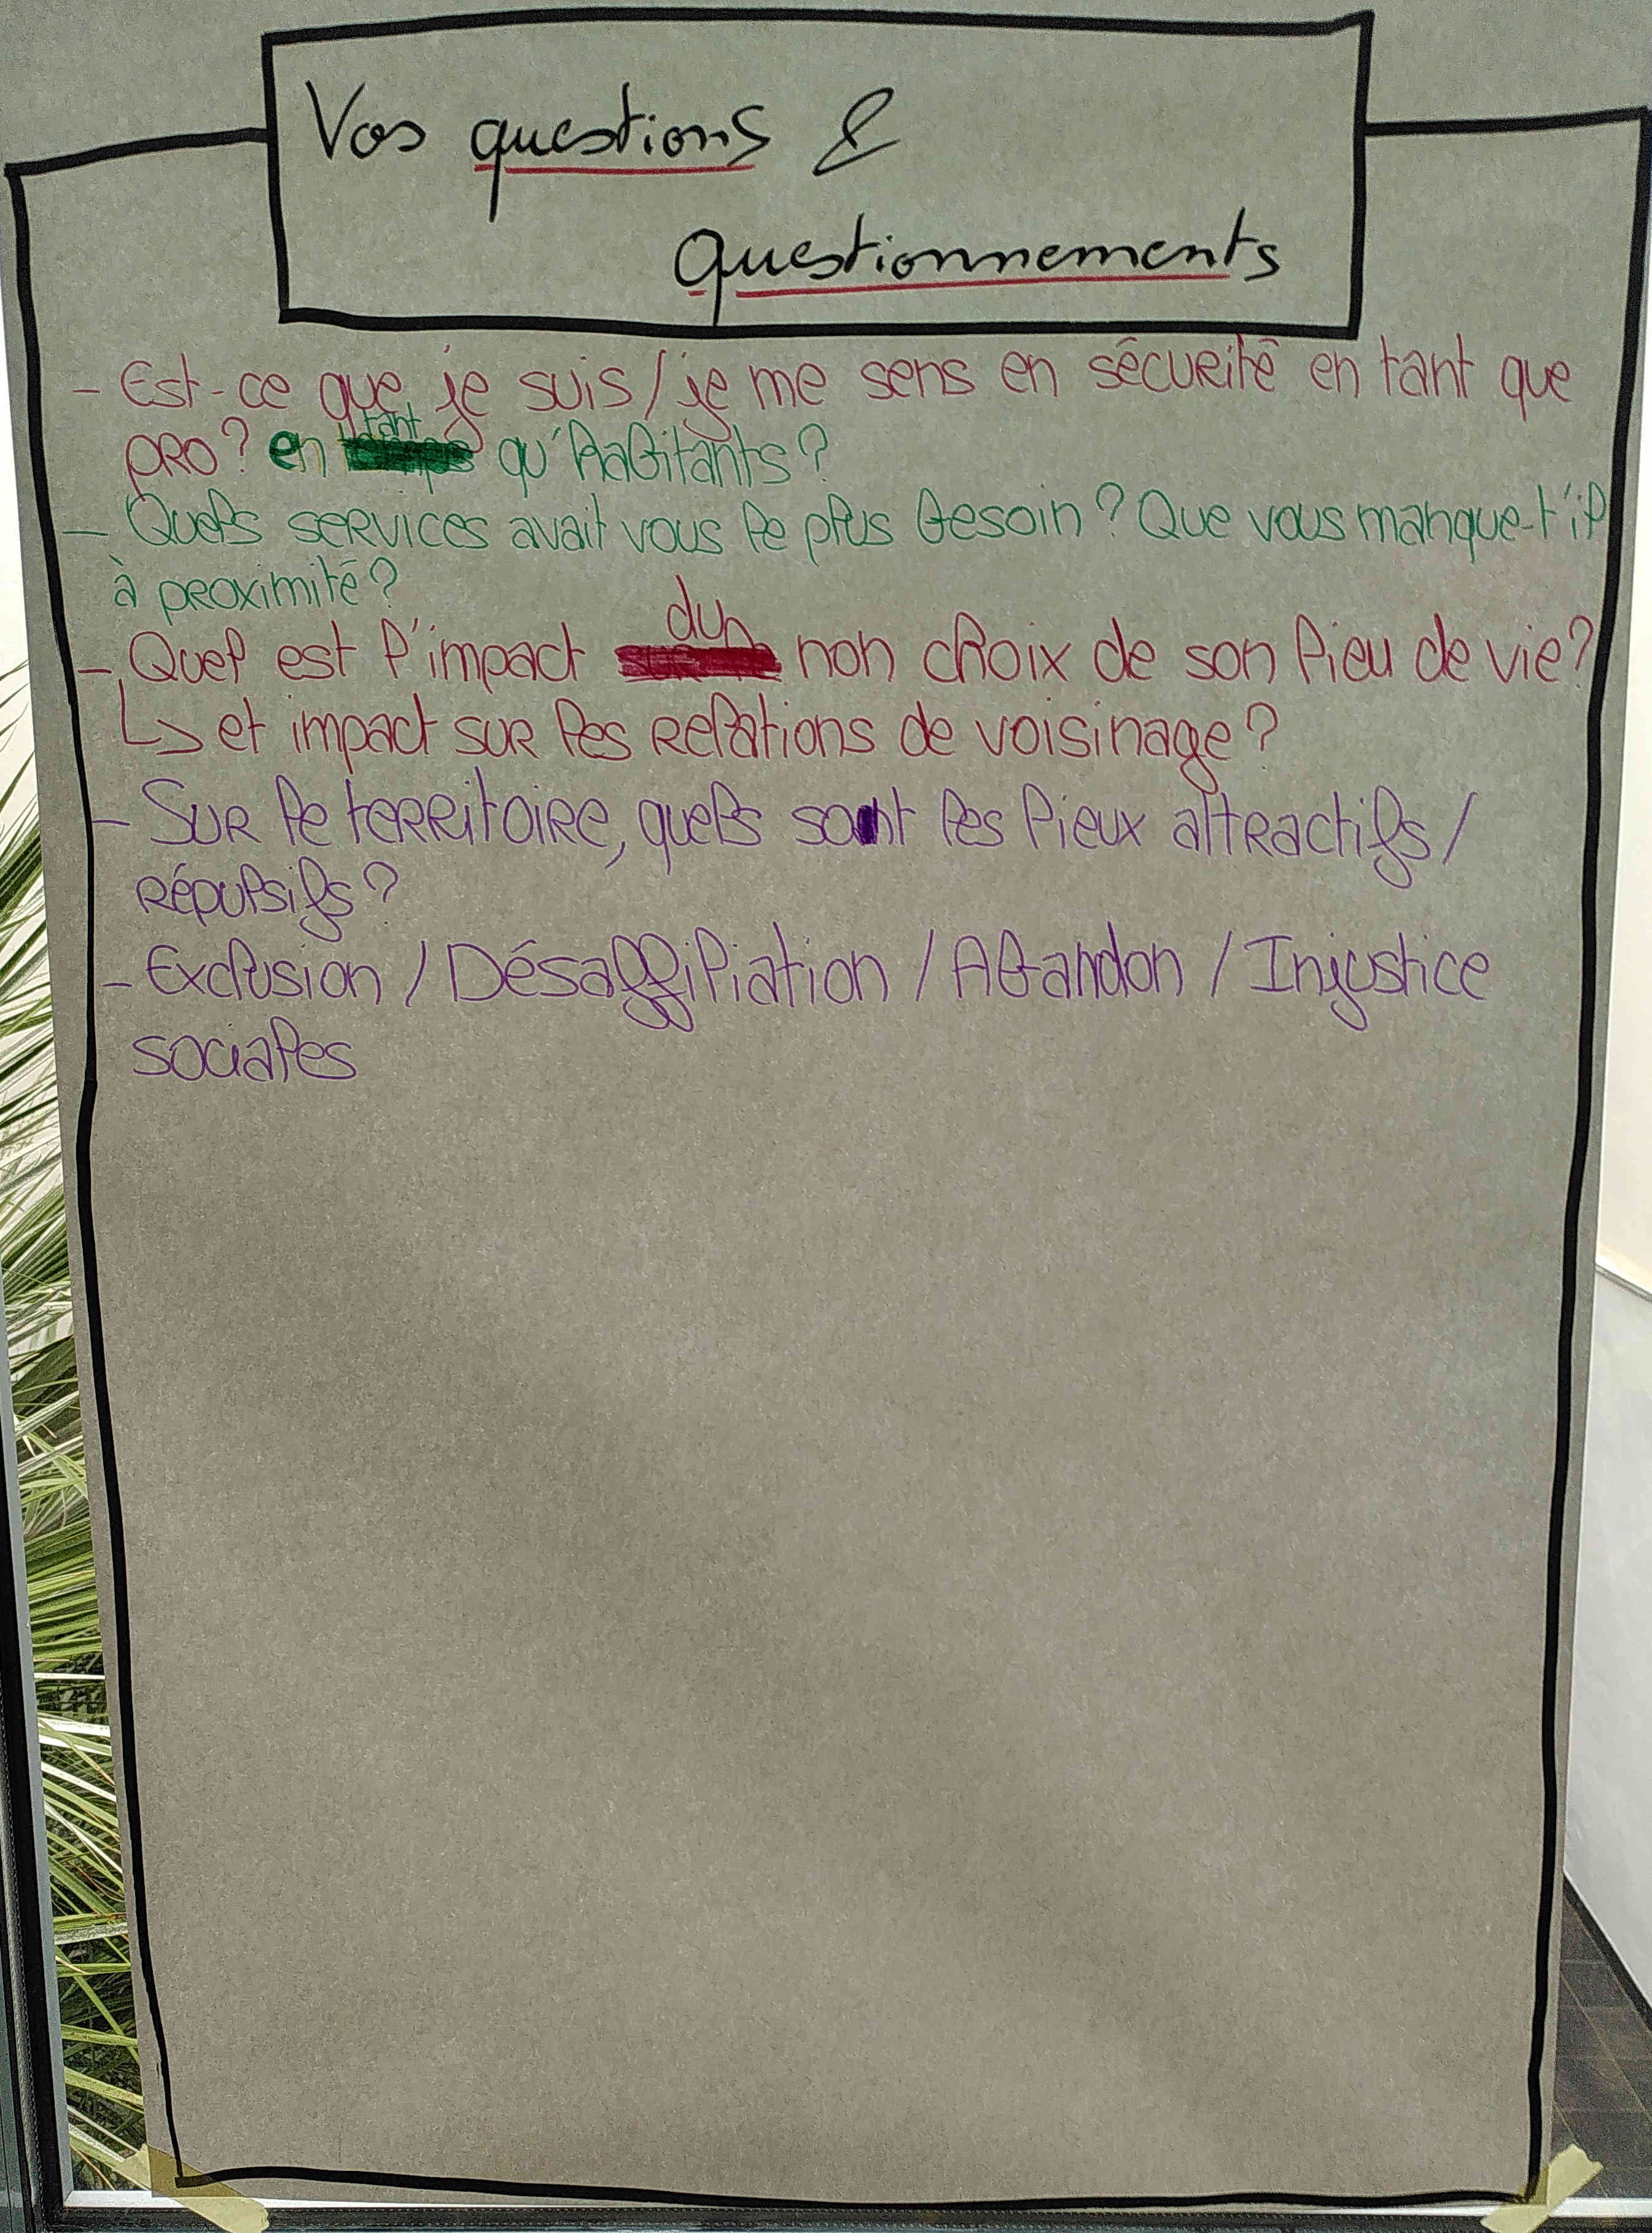 Vos questions &
questionnements
- Est-ce que je suis / je me sens en sécurité en tant que
pro? en tant qu'habitants?
- Quels services avait vous le plus besoin? Que vous manque-t'il
à proximité?
- Quel est l'impact du non choix de son lieu de vie?
↳ et impact sur les relations de voisinage?
- Sur le territoire, quels sont les lieux attractifs /
répulsifs?
- Exclusion / Désaffiliation / Abandon / Injustice
sociales